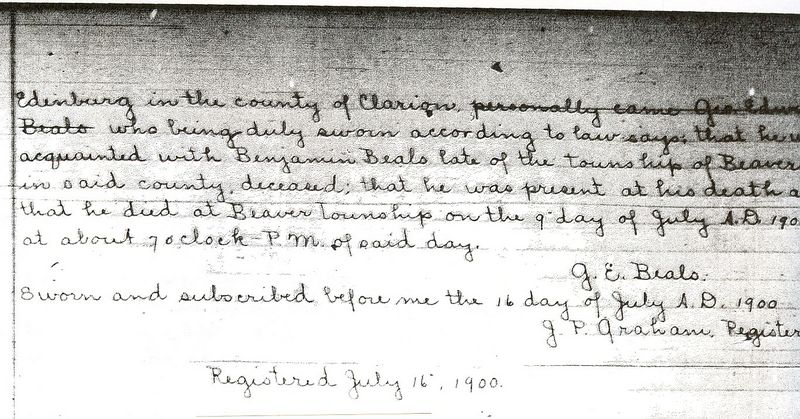 Edenburg in the county of Clarion, personally came Geo. Edw
Beals who being duly sworn according to law says; that he w
acquainted with Benjamin Beals late of the township of Beaver
in said county, deceased; that he was present at his death a
that he died at Beaver Township on the 9 day of July A.D. 190
at about 7 oclock P.M. of said day.
G. E. Beals.
Sworn and subscribed before me the 16 day of July A.D. 1900
J. P. Graham, Register
Registered July 16, 1900.